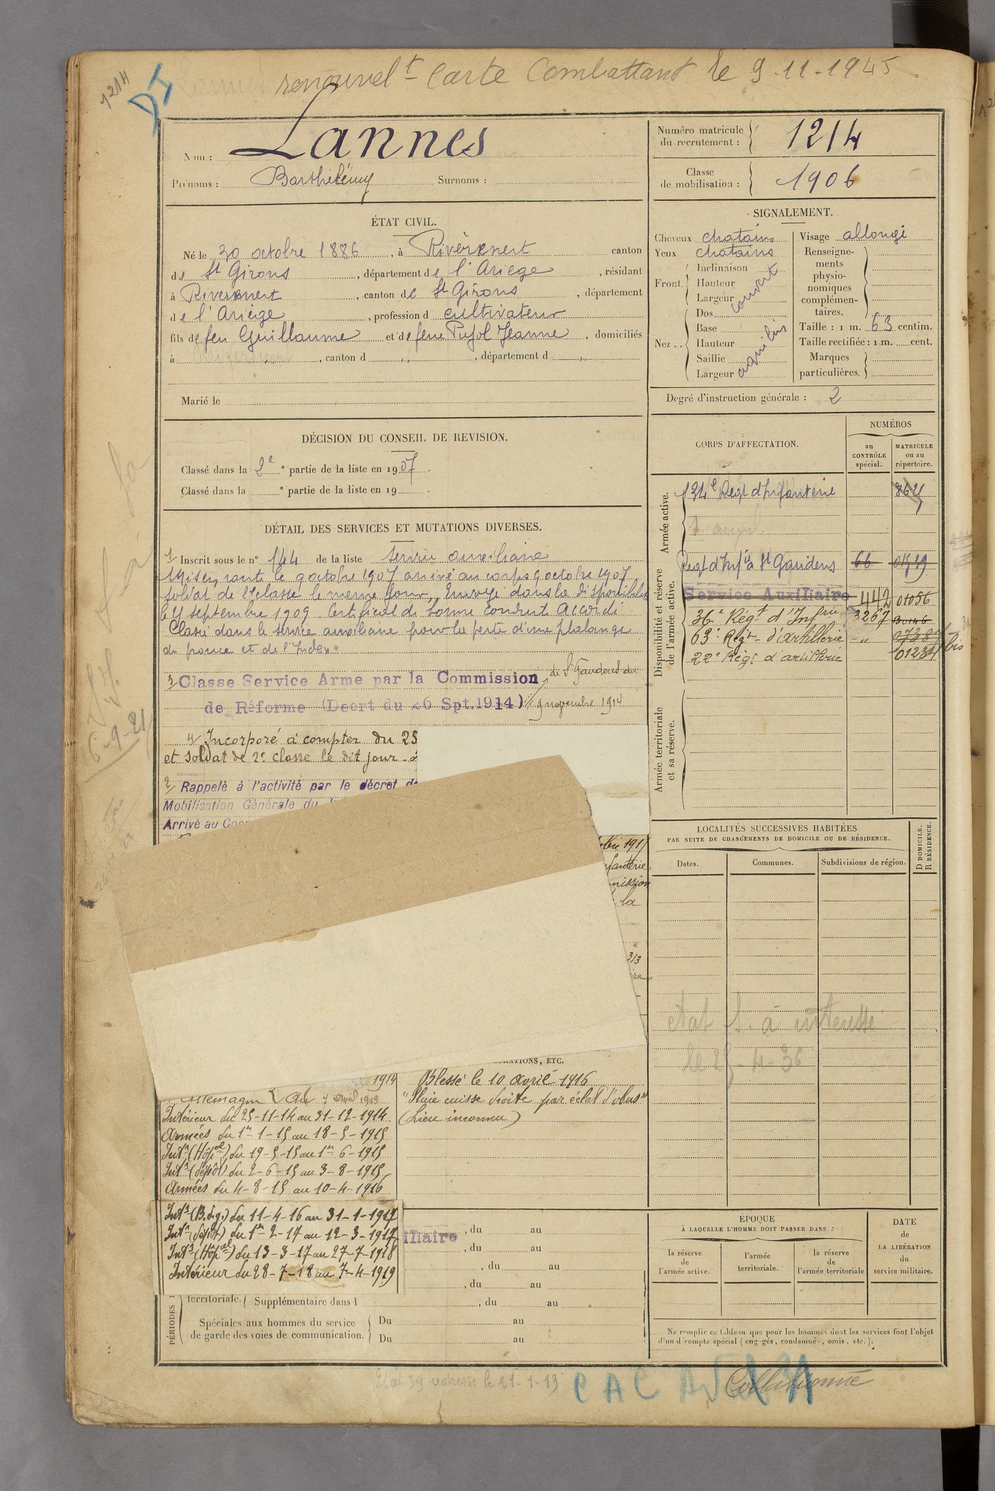 1214
renouvel^t Carte Combattant le 9-11-1945
Nom : Lannes
Prénoms : Barthélémy Surnoms :
Numéro matricule du recrutement : 1214
Classe de mobilisation : 1906
ÉTAT CIVIL.
Né le 30 octobre 1886, à Rivèrenert canton
de St Girons, département de l'Ariège, résidant
à Rivèrenert, canton de St Girons, département
de l'Ariège, profession de cultivateur
fils de feu Guillaume et de feue Pujol Jeanne, domiciliés
à , canton d , département d
Marié le
SIGNALEMENT.
Cheveux chatains
Yeux chatains
Front
Inclinaison
Hauteur
Largeur
couvert
Nez
Dos
Base
Hauteur
Saillie
Largeur
aquilin
Visage allongé
Renseignements physionomiques complémentaires.
Taille : 1 m. 63 centim.
Taille rectifiée : 1 m. cent.
Marques particulières.
Degré d'instruction générale : 2
DÉCISION DU CONSEIL DE REVISION.
Classé dans la 2e partie de la liste en 1907.
Classé dans la e partie de la liste en 19
DÉTAIL DES SERVICES ET MUTATIONS DIVERSES.
1/ Inscrit sous le n° 144 de la liste Service auxiliaire
Mis en route le 9 octobre 1907 arrivé au corps 9 octobre 1907
soldat de 2e classe le même jour. Envoyé dans la disponibilité
le septembre 1909. Certificat de bonne conduite Accordé
Classé dans le service auxiliaire pour la perte d'une phalange
du pouce et de l'index"
3/ Classe Service Arme par la Commission de St Gaudens du
de Réforme (Decrt du 26 Spt. 1914) 9 novembre 1914
4/ Incorporé à compter du 25
et soldat de 2e classe le dit jour
2/ Rappelé à l'activité par le décret d
Mobilisation Générale du
Arrivé au Co
1917
la
313
CORPS D'AFFECTATION.
NUMÉROS
au CONTRÔLE spécial.
MATRICULE ou au répertoire.
Armée active.
124e Regt d'Infanterie
Disponibilité et réserve de l'armée active.
Regt d'Inf à St Gaudens 66
Service Auxiliaire 442 01056
36e Régt d'Infrie 3267
63e Régt d'artillerie
22e Régt d'artillerie bis
Armée territoriale et sa réserve.
LOCALITÉS SUCCESSIVES HABITÉES
PAR SUITE DE CHANGEMENTS DE DOMICILE OU DE RÉSIDENCE.
Dates. Communes. Subdivisions de région.
D DOMICILE. R RÉSIDENCE.
le 4-36
ORATIONS, ETC.
1914
Allemagne du 7 avril 1919
Intérieur du 25-11-14 au 31-12-1914
Armées du 1er-1-15 au 18-5-1915
Intr (Hôpal) du 19-5-15 au 1er-6-1915
Intr (dépôt) du 2-6-15 au 3-8-1915
Armées du 4-8-15 au 10-4-1916
Intr (Bdg.) du 11-4-16 au 31-1-1917
Intr (dépôt) du 1er-2-17 au 12-3-1917
Intr (Hôpal) du 13-3-17 au 27-7-1918
Intérieur du 28-7-18 au 7-4-1919
Blessé le 10 avril 1916
"Plaie cuisse droite par éclat d'obus"
(Lieu inconnu)
iliaire , du au
, du au
, du au
, du au
territoriale. Supplémentaire dans l , du au
PÉRIODES
Spéciales aux hommes du service
de garde des voies de communication.
Du au
Du au
ÉPOQUE
À LAQUELLE L'HOMME DOIT PASSER DANS :
la réserve de l'armée active.
l'armée territoriale.
la réserve de l'armée territoriale
DATE DE LA LIBÉRATION du service militaire.
Ne remplir ce tableau que pour les hommes dont les services font l'objet
d'un décompte spécial (engagés, condamnés, omis, etc.).
C A C
Collationné